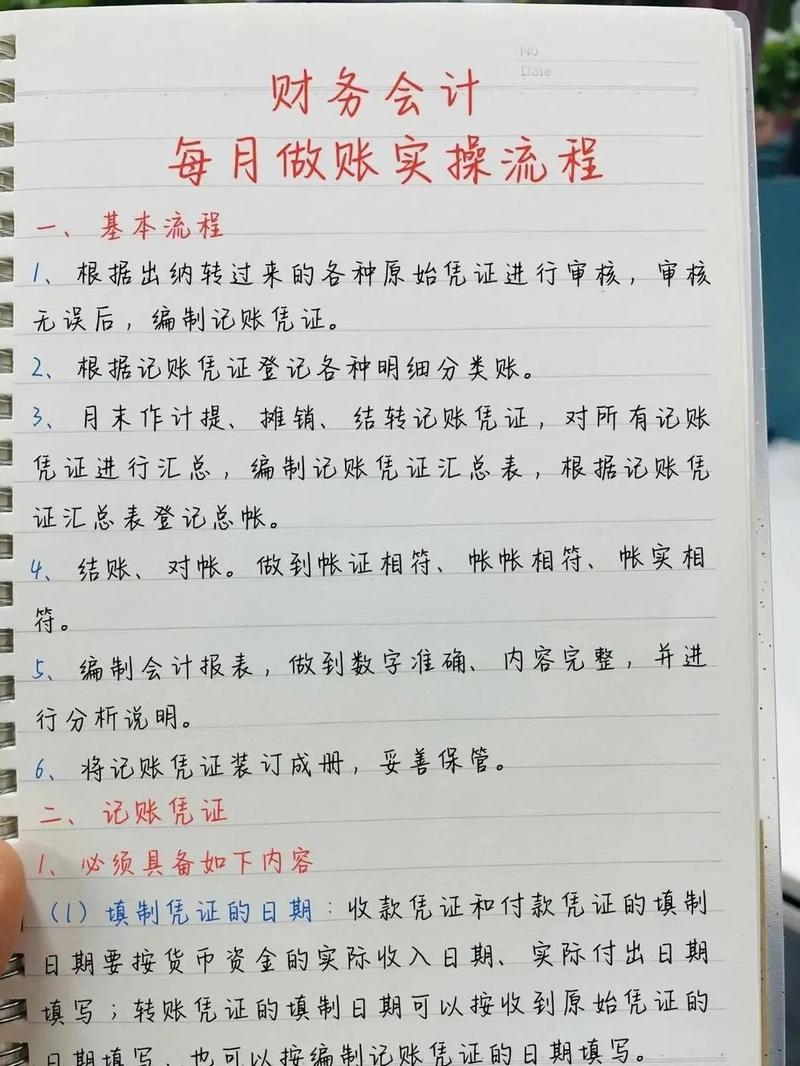 No
Date
财务会计
每月做账实操流程
一、基本流程
1、根据出纳转过来的各种原始凭证进行审核，审核
无误后，编制记账凭证。
2、根据记账凭证登记各种明细分类账。
3、月末作计提、摊销、结转记账凭证，对所有记账
凭证进行汇总，编制记账凭证汇总表，根据记账凭
证汇总表登记总帐。
4、结账、对帐。做到帐证相符、帐帐相符、帐实相
符。
5、编制会计报表，做到数字准确、内容完整，并进
行分析说明。
6、将记账凭证装订成册，妥善保管。
二、记账凭证
1、必须具备如下内容
（1）填制凭证的日期：收款凭证和付款凭证的填制
日期要按货币资金的实际收入日期、实际付出日期
填写；转账凭证的填制日期可以按收到原始凭证的
日期填写，也可以按编制记账凭证的日期填写。